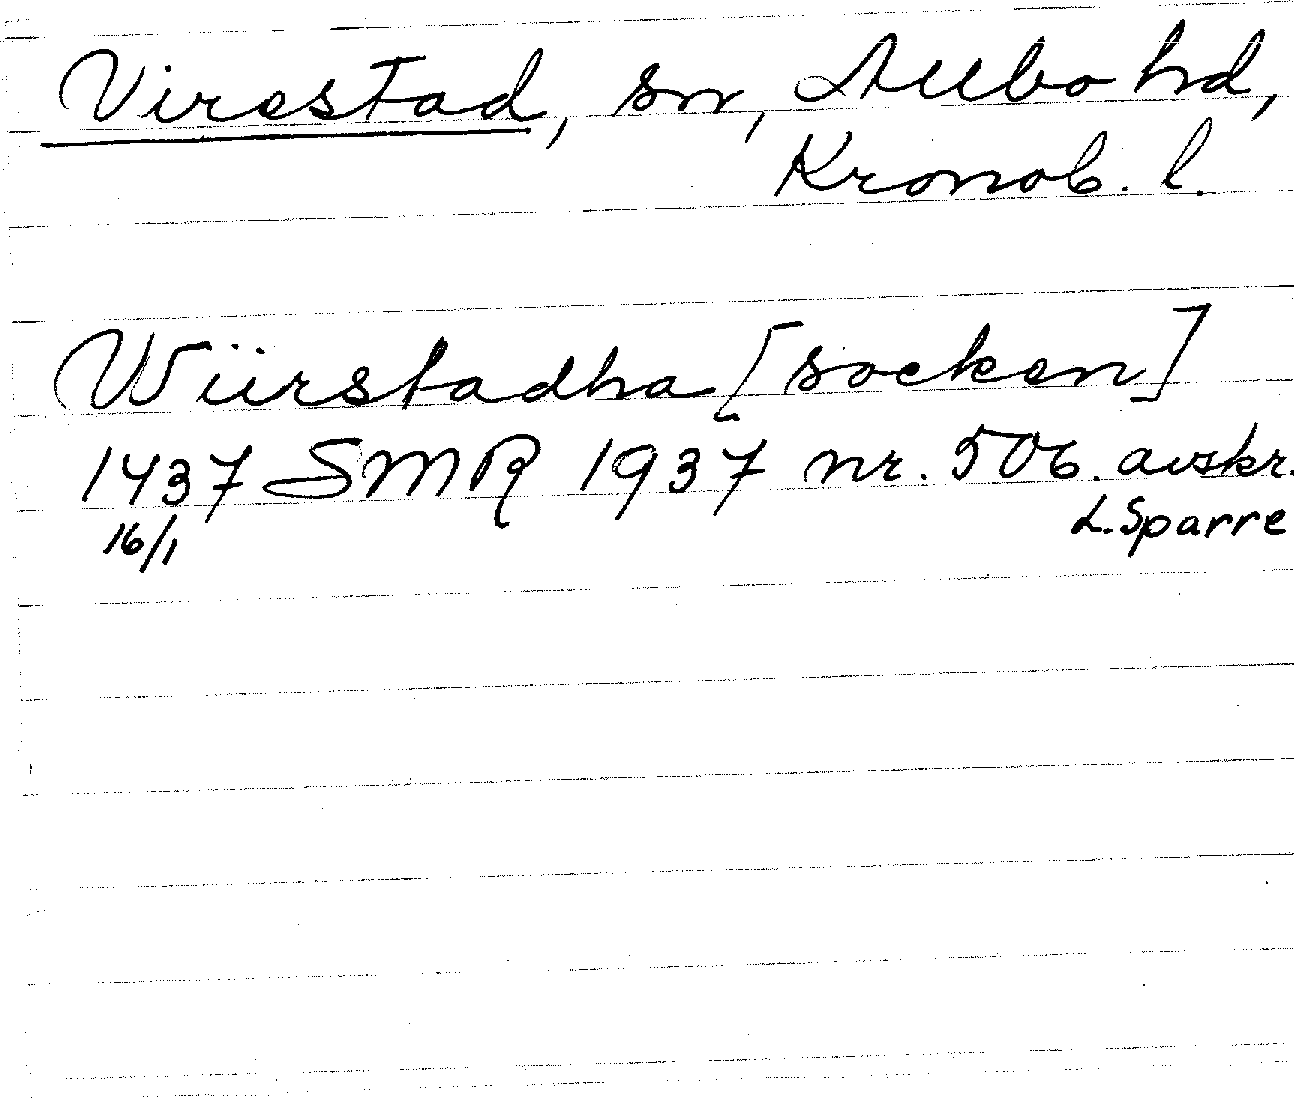 Virestad, sn, Allbo hd,
Kronob. l.
Wiirstadha [socken]
1437 SMR 1937 nr. 506. avskr.
16/1 L. Sparre